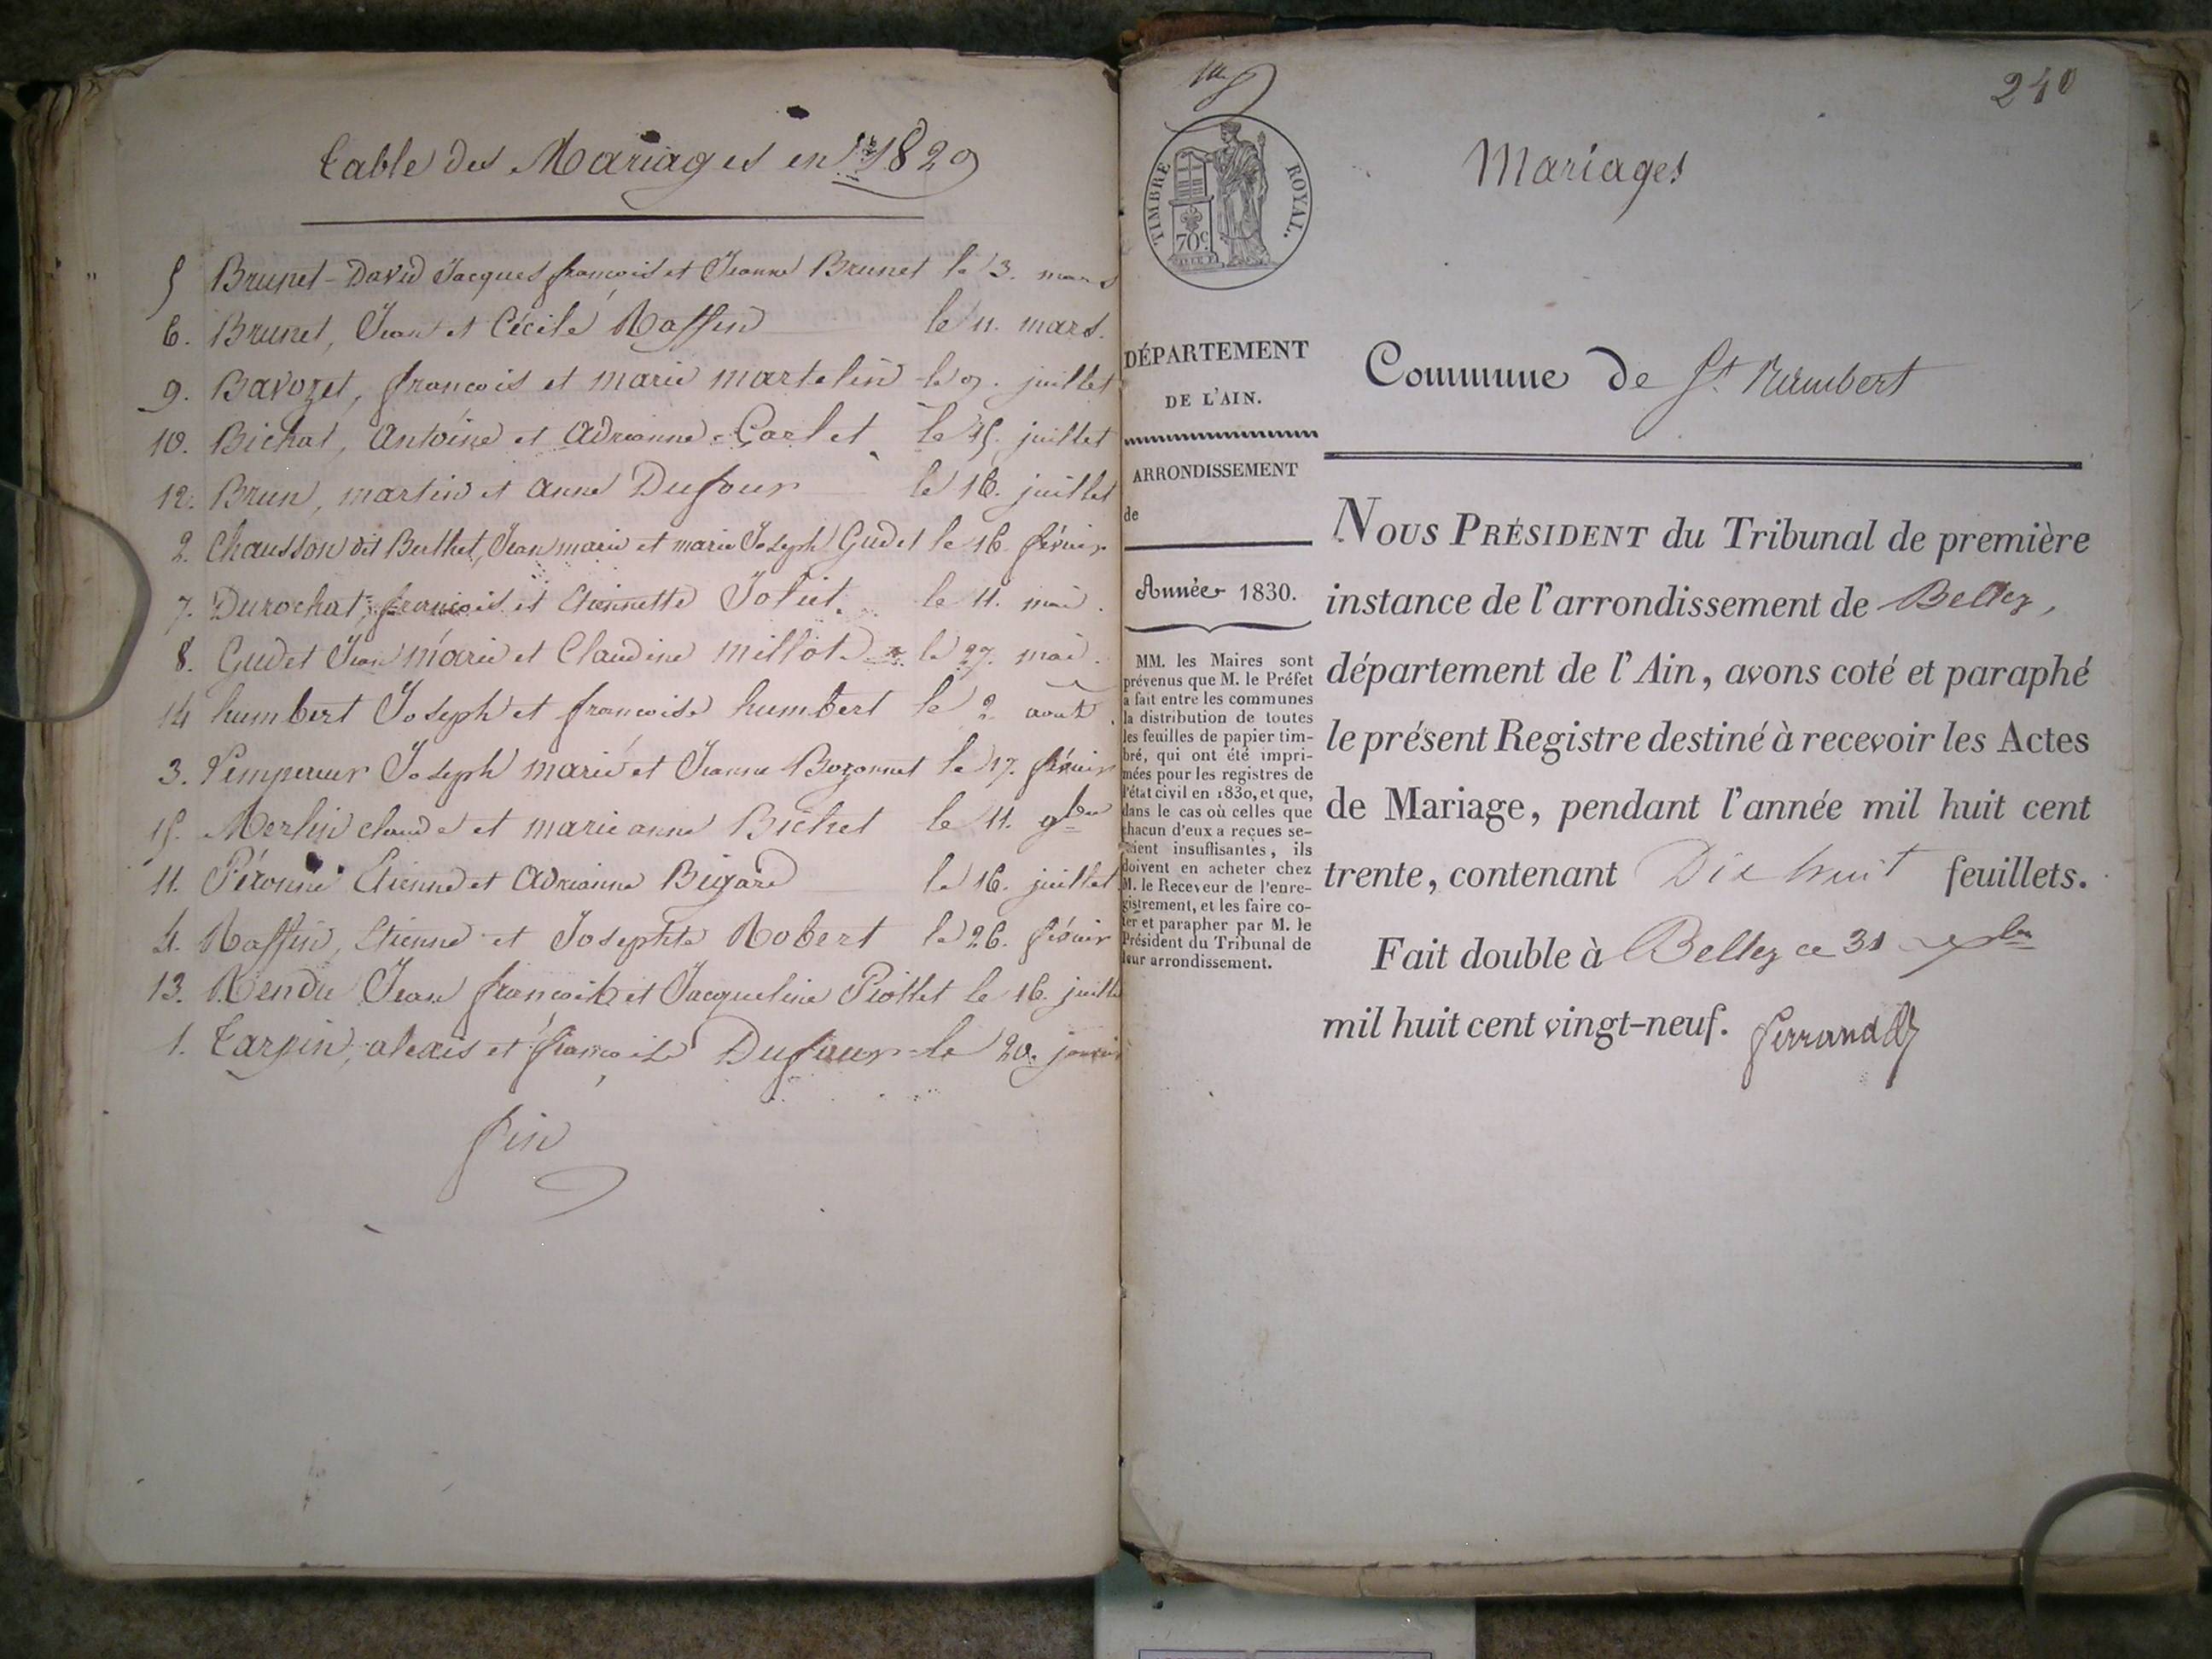 Table des Mariages en 1829
5 Brunet-David Jacques françois et Jeanne Brunet le 3. mars
6. Brunet, Jean et Cécile Raffin le 11. mars.
9. Bavozet, françois et marie martelin le 9. juillet
10. Bichat, Antoine et Adrianne Carlet le 15. juillet
12. Brun, martin et anne Dufour le 16. juillet
2. Chausson dit Berthet, Jean marie et marie Joseph Gudet le 16 février
7. Durochat, françois et Etiennette Joliet. le 11. mai.
8. Gudet Jean marie et Claudine millot le 27. mai.
14 humbert Joseph et françoise humbert le 2 août.
3. Lempereur Joseph marie et Jeanne Bozonnet le 17. février
15. Merlin claude et marie anne Bichet le 11. 9bre
11. Péronne Etienne et Adrianne Bigard le 16. juillet
4. Raffin, Etienne et Josephte Robert le 26. février
13. Rendu Jean françois et Jacqueline Piollet le 16. juillet
1. Tarpin, alexis et françoise Dufour le 20. janvier
fin
240
TIMBRE ROYAL.
70c
Mariages
DÉPARTEMENT
DE L'AIN.
ARRONDISSEMENT
de
Année 1830.
MM. les Maires sont
prévenus que M. le Préfet
a fait entre les communes
la distribution de toutes
les feuilles de papier tim-
bré, qui ont été impri-
mées pour les registres de
l'état civil en 1830, et que,
dans le cas où celles que
chacun d'eux a reçues se-
raient insuffisantes, ils
doivent en acheter chez
M. le Receveur de l'enre-
gistrement, et les faire co-
ter et parapher par M. le
Président du Tribunal de
leur arrondissement.
Commune de St. Rambert
NOUS PRÉSIDENT du Tribunal de première
instance de l'arrondissement de Belley,
département de l'Ain, avons coté et paraphé
le présent Registre destiné à recevoir les Actes
de Mariage, pendant l'année mil huit cent
trente, contenant Dix huit feuillets.
Fait double à Belley ce 31 xbre
mil huit cent vingt-neuf. Ferrand